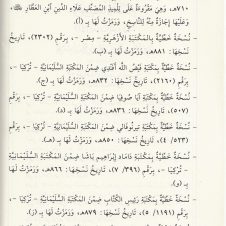 ٧١٠هـ، وَهِيَ مَقْرُوءَةٌ عَلَى تِلْمِيذِ الْمُصَنِّفِ عَلَاءِ الدِّينِ ابْنِ الْعَطَّارِ
وَعَلَيْهَا إِجَازَةٌ مِنْهُ لِلنَّاسِخِ، وَرَمَزْتُ لَهَا بِـ (أ).
- نُسْخَةٌ خَطِّيَّةٌ بِالْمَكْتَبَةِ الْأَزْهَرِيَّةِ - مِصْر -، بِرَقْمِ (٢٣٠٢)، تَارِيخُ
نَسْخِهَا: ٨٨١هـ، وَرَمَزْتُ لَهَا بِـ (ب).
- نُسْخَةٌ خَطِّيَّةٌ بِمَكْتَبَةِ فَيْضِ اللَّه أَفَنْدِي ضِمْنَ الْمَكْتَبَةِ السُّلَيْمَانِيَّةِ - تُرْكِيَا -،
بِرَقْمِ (٢١٦٠)، تَارِيخُ نَسْخِهَا: ٨٣٢هـ، وَرَمَزْتُ لَهَا بِـ (ج).
- نُسْخَةٌ خَطِّيَّةٌ بِمَكْتَبَةِ آيَا صُوفِيَا ضِمْنَ الْمَكْتَبَةِ السُّلَيْمَانِيَّةِ - تُرْكِيَا -، بِرَقْمِ
(٥٠٧)، تَارِيخُ نَسْخِهَا: ٨٣٦هـ، وَرَمَزْتُ لَهَا بِـ (د).
- نُسْخَةٌ خَطِّيَّةٌ بِمَكْتَبَةِ تِيرنُوفَالِي ضِمْنَ الْمَكْتَبَةِ السُّلَيْمَانِيَّةِ - تُرْكِيَا -، بِرَقْمِ
(٥٢٣/ ٤)، تَارِيخُ نَسْخِهَا: ٨٥٠هـ، وَرَمَزْتُ لَهَا بِـ (هـ).
- نُسْخَةٌ خَطِّيَّةٌ بِمَكْتَبَةِ دَامَاد إِبْرَاهِيم بَاشَا ضِمْنَ الْمَكْتَبَةِ السُّلَيْمَانِيَّةِ
- تُرْكِيَا -، بِرَقْمِ (٣٩٦/ ٧)، تَارِيخُ نَسْخِهَا: ٨٦٦هـ، وَرَمَزْتُ لَهَا
بِـ (و).
- نُسْخَةٌ خَطِّيَّةٌ بِمَكْتَبَةِ رَئِيسِ الْكُتَّابِ ضِمْنَ الْمَكْتَبَةِ السُّلَيْمَانِيَّةِ - تُرْكِيَا -،
بِرَقْمِ (١١٩١/ ٥)، تَارِيخُ نَسْخِهَا: ٨٧٩هـ، وَرَمَزْتُ لَهَا بِـ (ز).